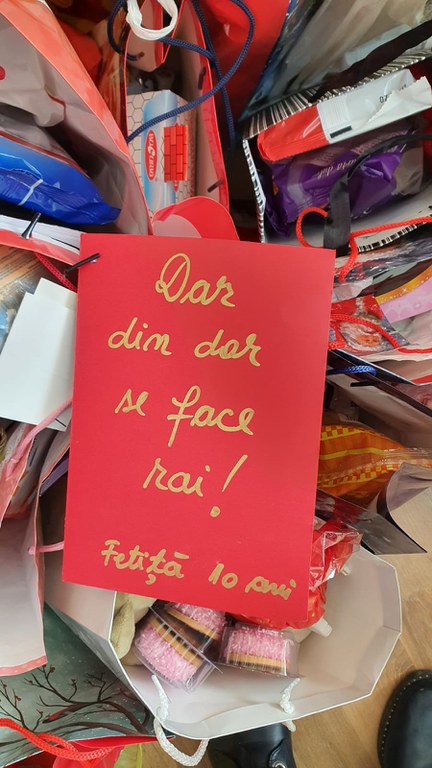 Dar
din dar
se face
rai!
Fetiță 10 ani